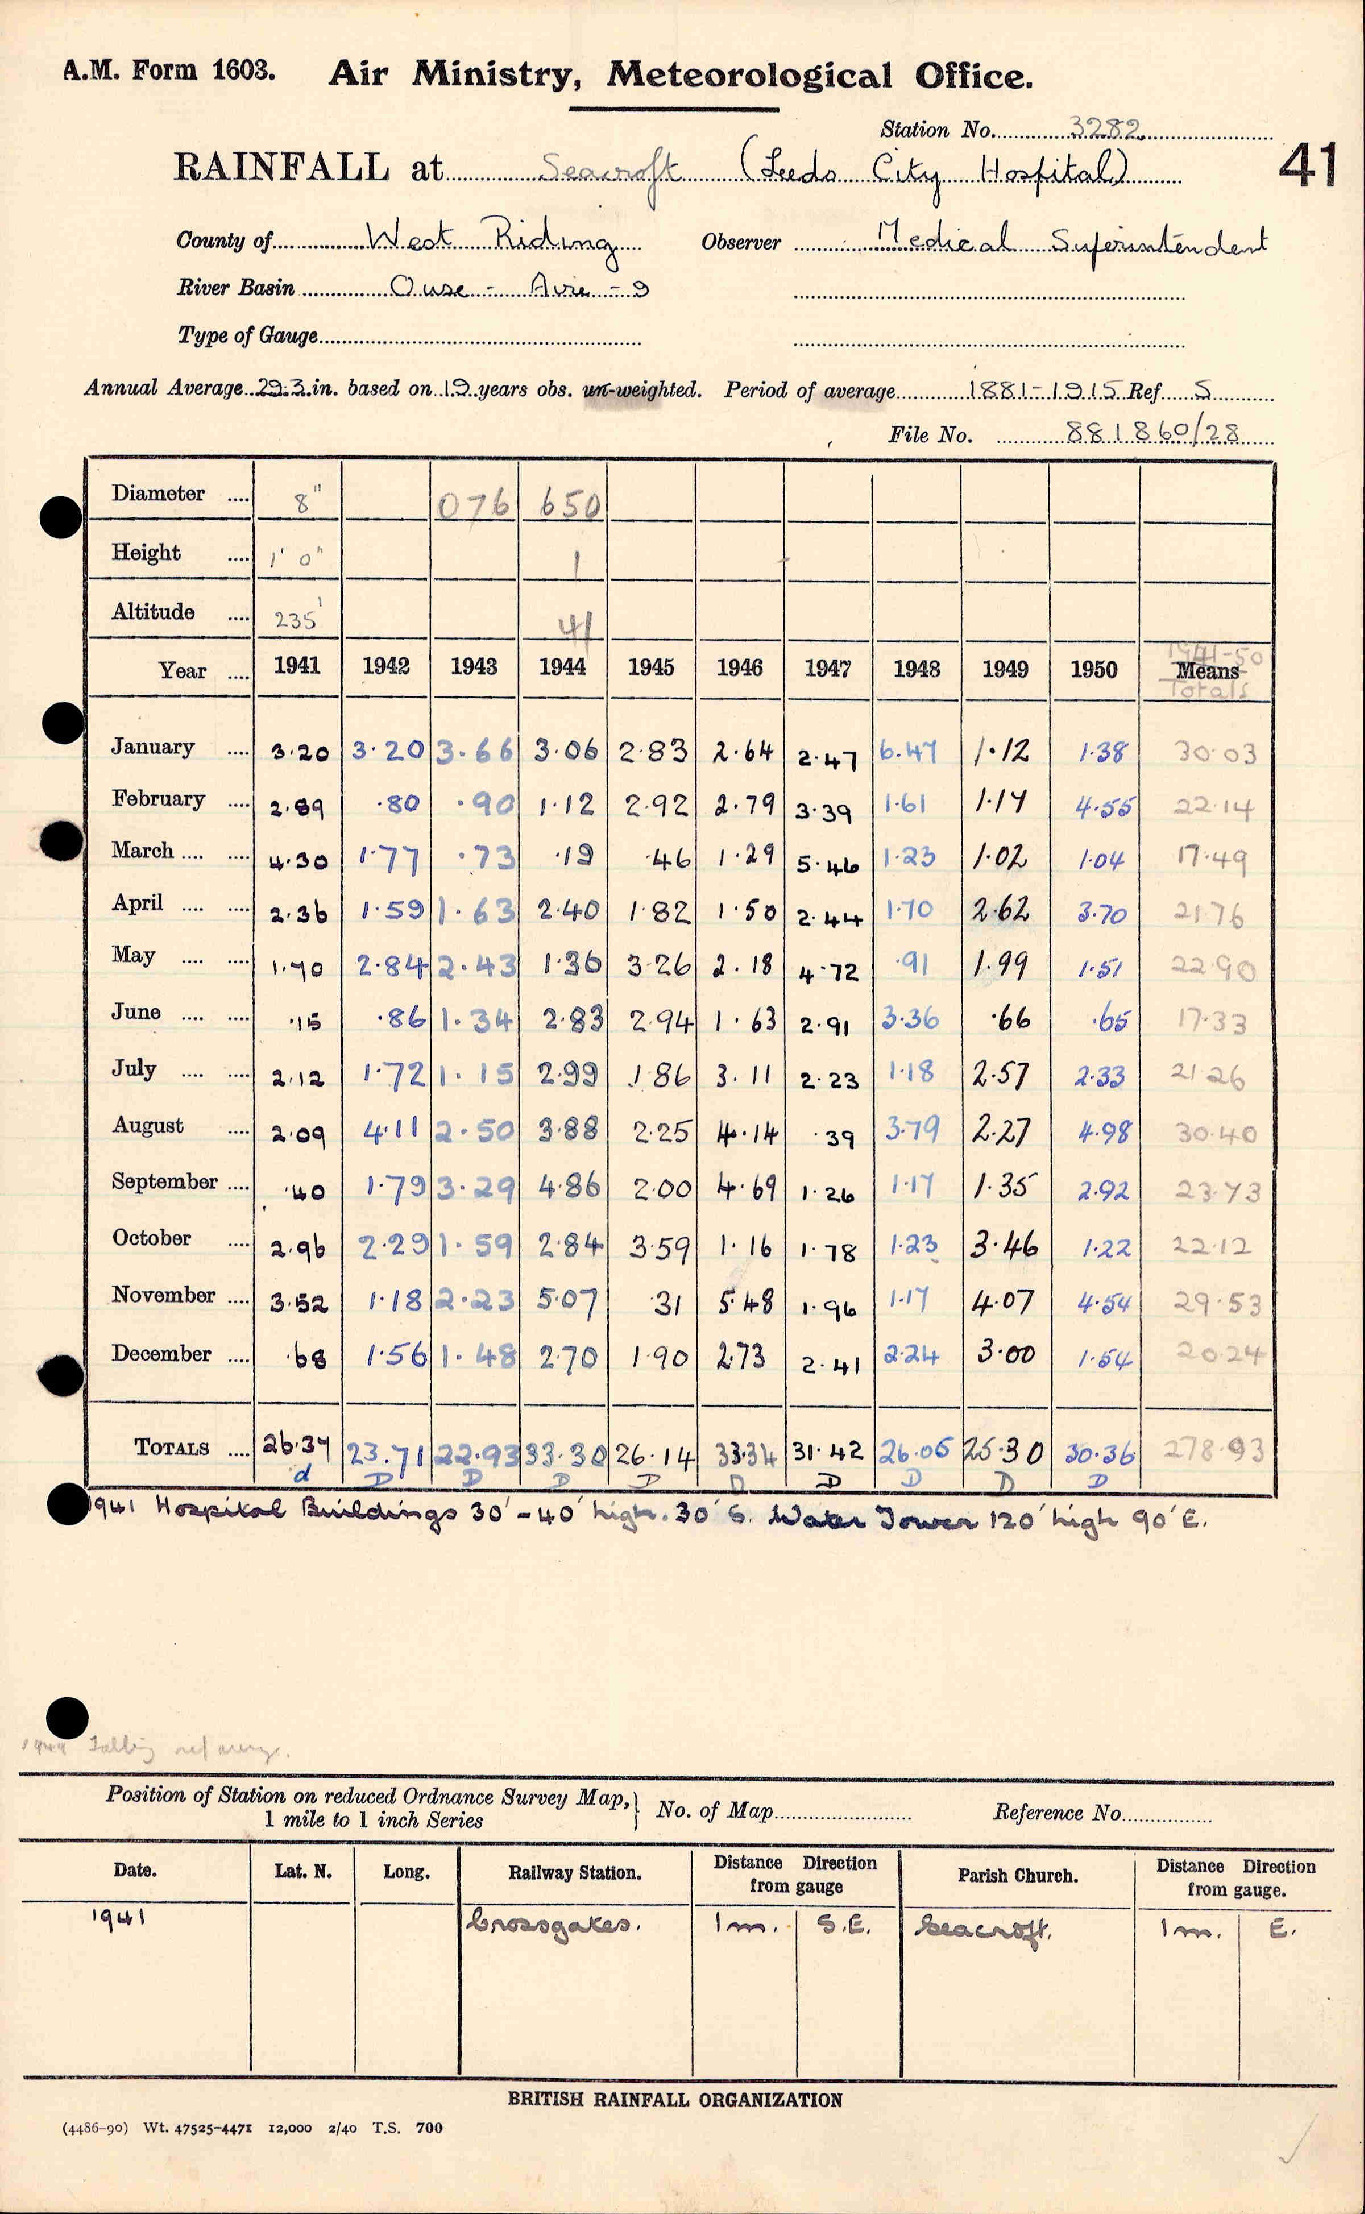 A.M. Form 1603. Air Ministry, Meteorological Office.
Station No. 3282
RAINFALL at Seacroft (Leeds City Hospital) 41
County of West Riding Observer Medical Superintendent
River Basin Ouse - Aire - 9
Type of Gauge
Annual Average 29.3 in. based on 19 years obs. un-weighted. Period of average 1881-1915 Ref S
File No. 881860/28
Diameter .... 8" 076 650
Height .... 1' 0" 1
Altitude .... 235' 41
1941-50
Year .... 1941 1942 1943 1944 1945 1946 1947 1948 1949 1950 Means
Totals
January .... 3·20 3·20 3·66 3·06 2·83 2·64 2·47 6·47 1·12 1·38 30·03
February .... 2·89 ·80 ·90 1·12 2·92 2·79 3·39 1·61 1·17 4·55 22·14
March .... .... 4·30 1·77 ·73 ·19 ·46 1·29 5·46 1·23 1·02 1·04 17·49
April .... .... 2·36 1·59 1·63 2·40 1·82 1·50 2·44 1·70 2·62 3·70 21·76
May .... .... 1·70 2·84 2·43 1·36 3·26 2·18 4·72 ·91 1·99 1·51 22·90
June .... .... ·15 ·86 1·34 2·83 2·94 1·63 2·91 3·36 ·66 ·65 17·33
July .... .... 2·12 1·72 1·15 2·99 1·86 3·11 2·23 1·18 2·57 2·33 21·26
August .... 2·09 4·11 2·50 3·88 2·25 4·14 ·39 3·79 2·27 4·98 30·40
September .... ·40 1·79 3·29 4·86 2·00 4·69 1·26 1·17 1·35 2·92 23·73
October .... 2·96 2·29 1·59 2·84 3·59 1·16 1·78 1·23 3·46 1·22 22·12
November .... 3·52 1·18 2·23 5·07 ·31 5·48 1·96 1·17 4·07 4·54 29·53
December .... ·68 1·56 1·48 2·70 1·90 2·73 2·41 2·24 3·00 1·54 20·24
TOTALS .... 26·37 23·71 22·93 33·30 26·14 33·34 31·42 26·06 25·30 30·36 278·93
d D D D D D D D D D
1941 Hospital Buildings 30'-40' high. 30' S. Water Tower 120' high 90' E.
Position of Station on reduced Ordnance Survey Map, 1 mile to 1 inch Series } No. of Map Reference No.
Date. Lat. N. Long. Railway Station. Distance Direction from gauge Parish Church. Distance Direction from gauge.
1941 Crossgates. 1 m. S.E. Seacroft. 1 m. E.
BRITISH RAINFALL ORGANIZATION
(4486-90) Wt. 47525-4471 12,000 2/40 T.S. 700